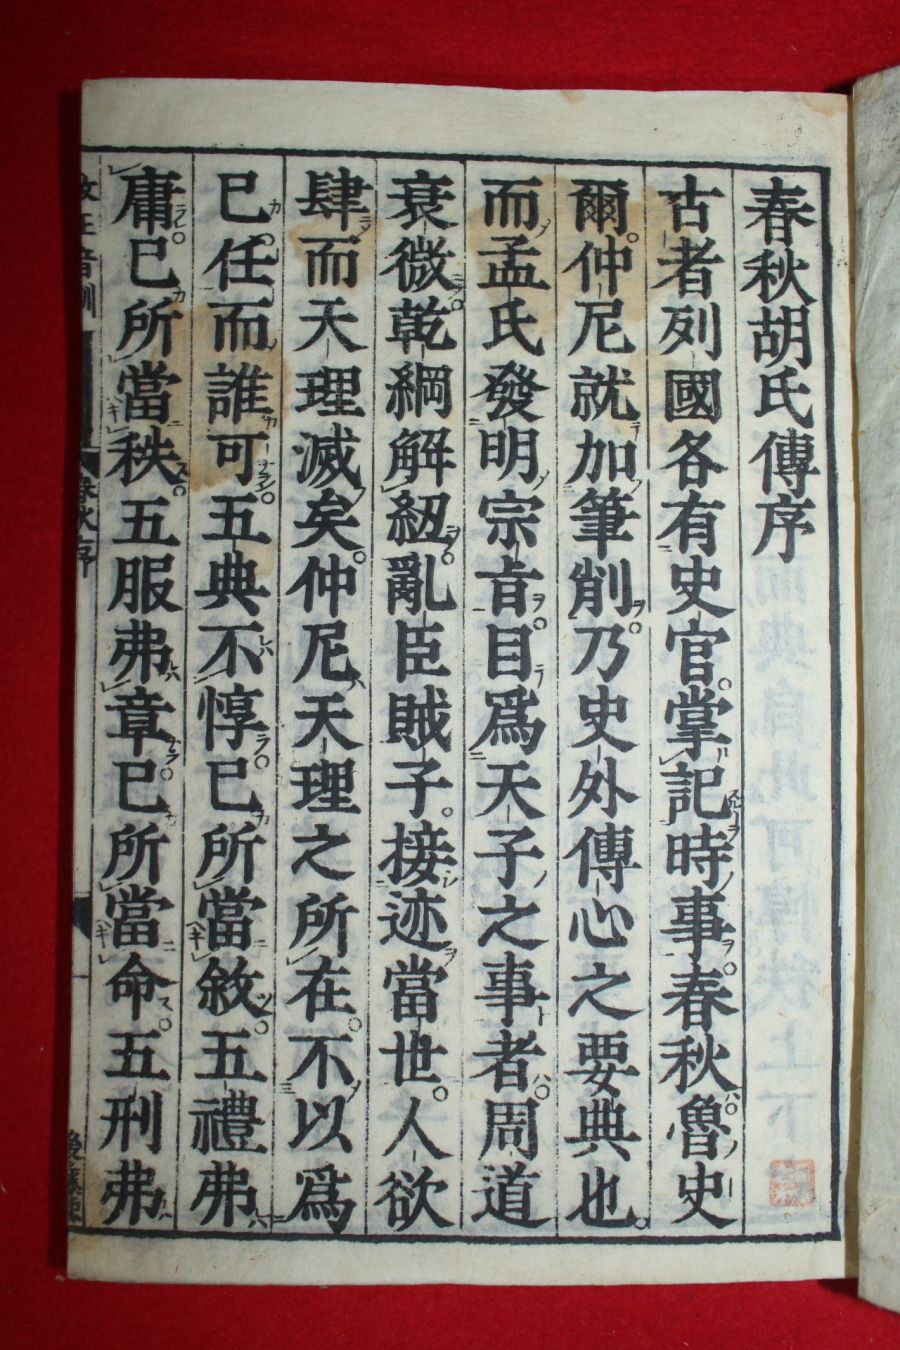 春秋胡氏傳序
古者列國各有史官掌記時事春秋魯史
爾仲尼就加筆削乃史外傳心之要典也
而孟氏發明宗㫖目爲天子之事者周道
衰微乾綱解紐亂臣賊子接迹當世人欲
肆而天理滅矣仲尼天理之所在不以爲
已任而誰可五典不惇已所當敘五禮弗
庸已所當秩五服弗章已所當命五刑弗
春秋序